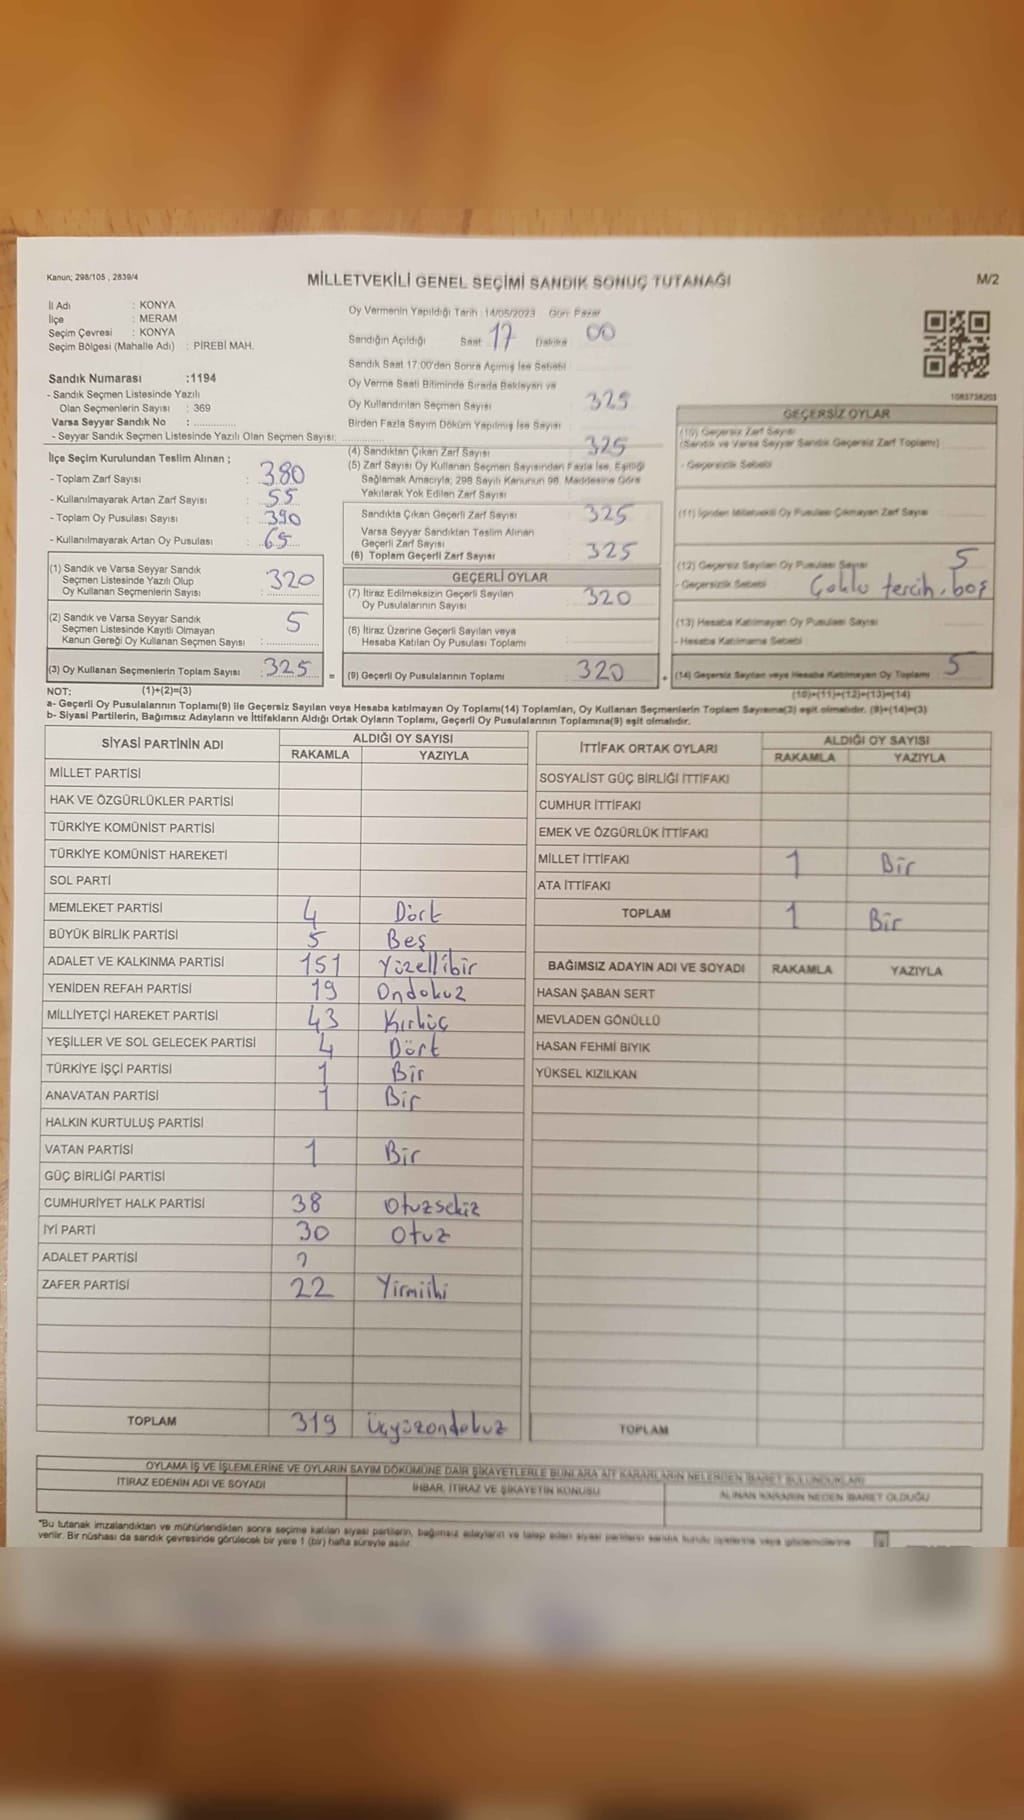 Kanun; 298/105 , 2839/4
MİLLETVEKİLİ GENEL SEÇİMİ SANDIK SONUÇ TUTANAĞI
M/2
İl Adı : KONYA
İlçe : MERAM
Seçim Çevresi : KONYA
Seçim Bölgesi (Mahalle Adı) : PİREBİ MAH.
Sandık Numarası :1194
- Sandık Seçmen Listesinde Yazılı
Olan Seçmenlerin Sayısı : 369
Varsa Seyyar Sandık No :
- Seyyar Sandık Seçmen Listesinde Yazılı Olan Seçmen Sayısı:
İlçe Seçim Kurulundan Teslim Alınan ;
- Toplam Zarf Sayısı : 380
- Kullanılmayarak Artan Zarf Sayısı : 55
- Toplam Oy Pusulası Sayısı : 390
- Kullanılmayarak Artan Oy Pusulası : 65
(1) Sandık ve Varsa Seyyar Sandık
Seçmen Listesinde Yazılı Olup
Oy Kullanan Seçmenlerin Sayısı : 320
(2) Sandık ve Varsa Seyyar Sandık
Seçmen Listesinde Kayıtlı Olmayan
Kanun Gereği Oy Kullanan Seçmen Sayısı : 5
(3) Oy Kullanan Seçmenlerin Toplam Sayısı : 325 =
Oy Vermenin Yapıldığı Tarih :14/05/2023 Gün: Pazar
Sandığın Açıldığı Saat 17 Dakika 00
Sandık Saat 17:00'den Sonra Açımış İse Sebebi
Oy Verme Saati Bitiminde Sırada Bekleyen ve
Oy Kullandırılan Seçmen Sayısı 325
Birden Fazla Sayım Döküm Yapılmış İse Sayısı
(4) Sandıktan Çıkan Zarf Sayısı 325
(5) Zarf Sayısı Oy Kullanan Seçmen Sayısından Fazla İse, Eşitliği
Sağlamak Amacıyla, 298 Sayılı Kanunun 98. Maddesine Göre
Yakılarak Yok Edilen Zarf Sayısı
Sandıkta Çıkan Geçerli Zarf Sayısı 325
Varsa Seyyar Sandıktan Teslim Alınan
Geçerli Zarf Sayısı
(6) Toplam Geçerli Zarf Sayısı 325
GEÇERLİ OYLAR
(7) İtiraz Edilmeksizin Geçerli Sayılan
Oy Pusulalarının Sayısı 320
(8) İtiraz Üzerine Geçerli Sayılan veya
Hesaba Katılan Oy Pusulası Toplamı
(9) Geçerli Oy Pusulalarının Toplamı 320 +
1083738203
GEÇERSİZ OYLAR
(10) Geçersiz Zarf Sayısı
(Sandık ve Varsa Seyyar Sandık Geçersiz Zarf Toplamı)
- Geçersizlik Sebebi
(11) İçinden Milletvekili Oy Pusulası Çıkmayan Zarf Sayısı
(12) Geçersiz Sayılan Oy Pusulası Sayısı 5
- Geçersizlik Sebebi Çoklu tercih, boş
(13) Hesaba Katılmayan Oy Pusulası Sayısı
- Hesaba Katılmama Sebebi
(14) Geçersiz Sayılan veya Hesaba Katılmayan Oy Toplamı 5
NOT: (1)+(2)=(3)
(10)+(11)+(12)+(13)=(14)
a- Geçerli Oy Pusulalarının Toplamı(9) ile Geçersiz Sayılan veya Hesaba katılmayan Oy Toplamı(14) Toplamları, Oy Kullanan Seçmenlerin Toplam Sayısına(3) eşit olmalıdır. (9)+(14)=(3)
b- Siyasi Partilerin, Bağımsız Adayların ve İttifakların Aldığı Ortak Oyların Toplamı, Geçerli Oy Pusulalarının Toplamına(9) eşit olmalıdır.
SİYASİ PARTİNİN ADI ALDIĞI OY SAYISI
RAKAMLA YAZIYLA
MİLLET PARTİSİ
HAK VE ÖZGÜRLÜKLER PARTİSİ
TÜRKİYE KOMÜNİST PARTİSİ
TÜRKİYE KOMÜNİST HAREKETİ
SOL PARTİ
MEMLEKET PARTİSİ 4 Dört
BÜYÜK BİRLİK PARTİSİ 5 Beş
ADALET VE KALKINMA PARTİSİ 151 Yüzellibir
YENİDEN REFAH PARTİSİ 19 Ondokuz
MİLLİYETÇİ HAREKET PARTİSİ 43 Kırküç
YEŞİLLER VE SOL GELECEK PARTİSİ 4 Dört
TÜRKİYE İŞÇİ PARTİSİ 1 Bir
ANAVATAN PARTİSİ 1 Bir
HALKIN KURTULUŞ PARTİSİ
VATAN PARTİSİ 1 Bir
GÜÇ BİRLİĞİ PARTİSİ
CUMHURİYET HALK PARTİSİ 38 Otuzsekiz
İYİ PARTİ 30 Otuz
ADALET PARTİSİ
ZAFER PARTİSİ 22 Yirmiiki
TOPLAM 319 Üçyüzondokuz
İTTİFAK ORTAK OYLARI ALDIĞI OY SAYISI
RAKAMLA YAZIYLA
SOSYALİST GÜÇ BİRLİĞİ İTTİFAKI
CUMHUR İTTİFAKI
EMEK VE ÖZGÜRLÜK İTTİFAKI
MİLLET İTTİFAKI 1 Bir
ATA İTTİFAKI
TOPLAM 1 Bir
BAĞIMSIZ ADAYIN ADI VE SOYADI RAKAMLA YAZIYLA
HASAN ŞABAN SERT
MEVLADEN GÖNÜLLÜ
HASAN FEHMİ BIYIK
YÜKSEL KIZILKAN
TOPLAM
OYLAMA İŞ VE İŞLEMLERİNE VE OYLARIN SAYIM DÖKÜMÜNE DAİR ŞİKAYETLERLE BUNLARA AİT KARARLARIN NELERDEN İBARET BULUNDUKLARI
İTİRAZ EDENİN ADI VE SOYADI
İHBAR, İTİRAZ VE ŞİKAYETİN KONUSU
ALINAN KARARIN NEDEN İBARET OLDUĞU
"Bu tutanak imzalandıktan ve mühürlendikten sonra seçime katılan siyasi partilerin, bağımsız adayların ve talep eden siyasi partilerin sandık kurulu üyelerine veya gözlemcilerine
verilir. Bir nüshası da sandık çevresinde görülecek bir yere 1 (bir) hafta süreyle asılır.